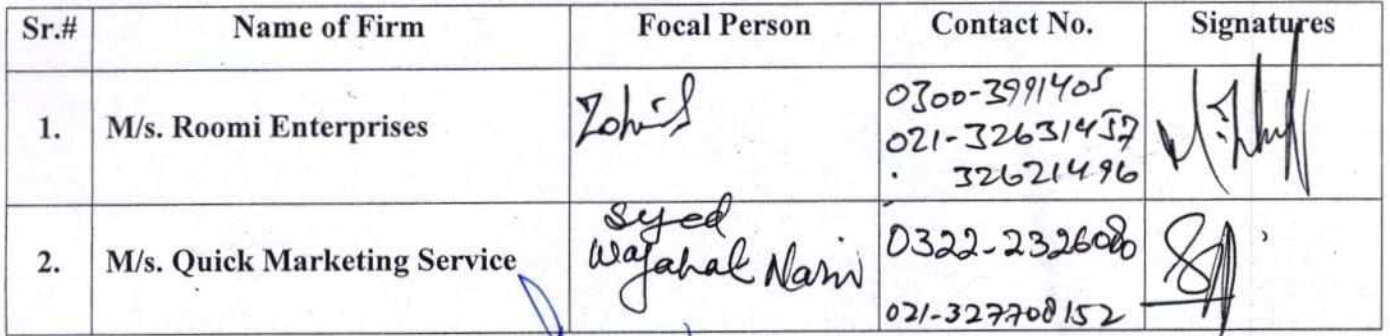 Sr.# Name of Firm Focal Person Contact No. Signatures
1. M/s. Roomi Enterprises Zohid 0300-3991405
021-32631437
32621496
2. M/s. Quick Marketing Service Syed
Wajahat 0322-2326080
021-327708152